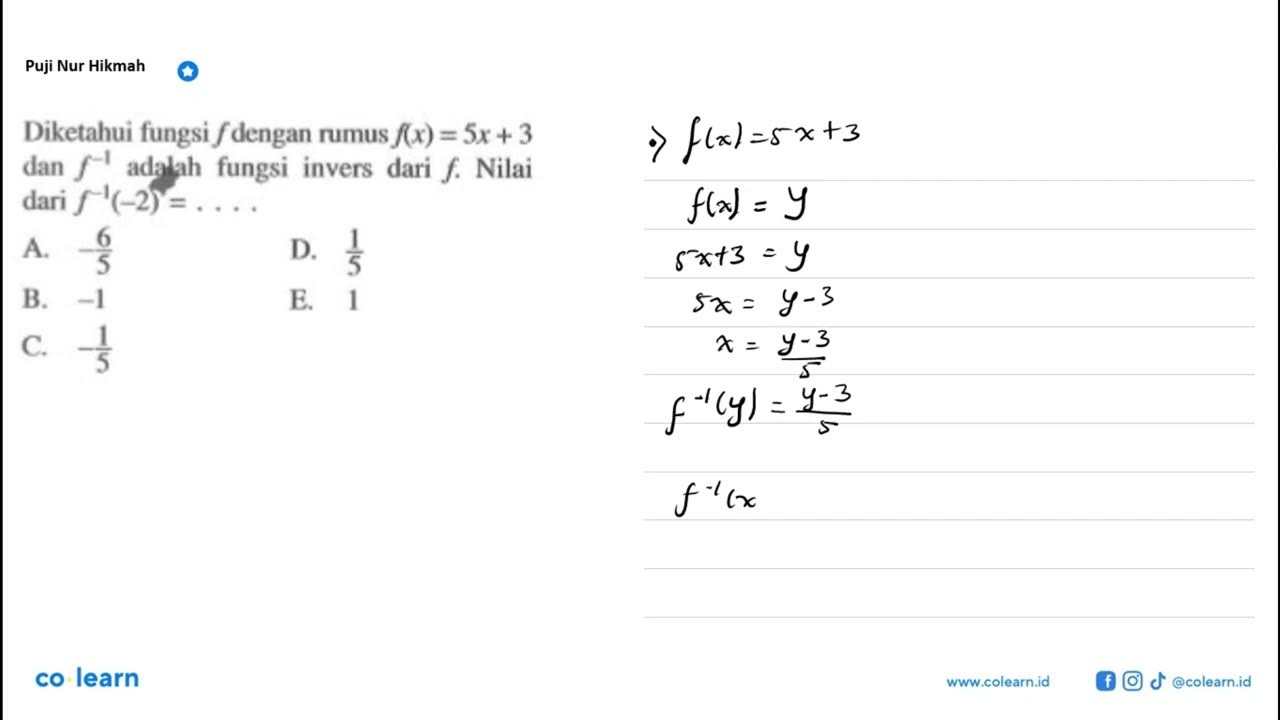 Puji Nur Hikmah
Diketahui fungsi f dengan rumus f(x) = 5x + 3
dan f⁻¹ adalah fungsi invers dari f. Nilai
dari f⁻¹(–2) = . . . .
A. –6/5
B. –1
C. –1/5
D. 1/5
E. 1
•) f(x) = 5x + 3
f(x) = y
5x+3 = y
5x = y – 3
x = y – 3 / 5
f⁻¹(y) = y – 3 / 5
f⁻¹(x
co learn
www.colearn.id
@colearn.id